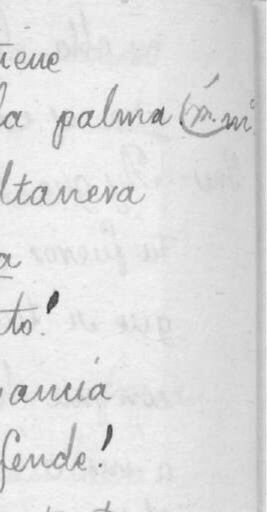 iene
la palma.
ltanera
a
to!
ancia
fende!